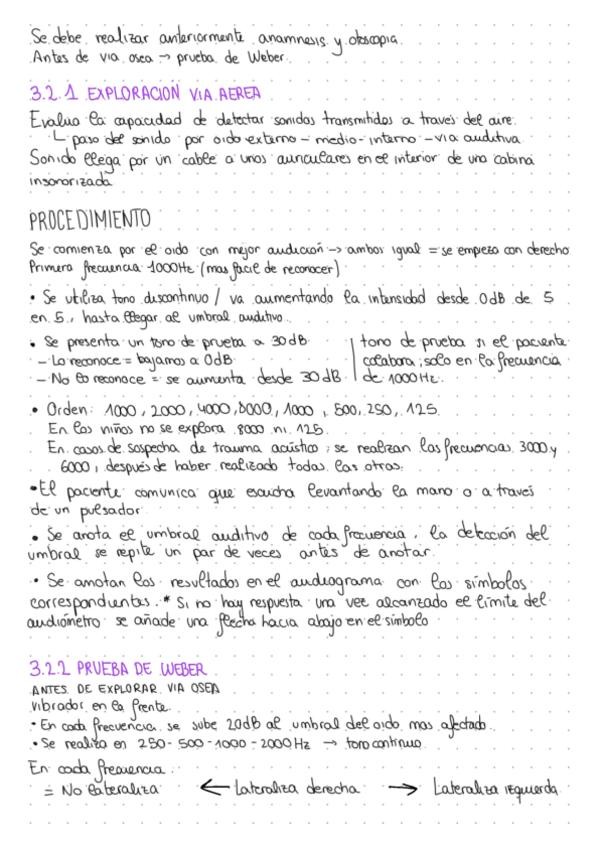 Se debe realizar anteriormente anamnesis y otoscopia.
Antes de via osea → prueba de Weber.
3.2.1 EXPLORACION VIA AEREA
Evalua la capacidad de detectar sonidos transmitidos a través del aire.
↳ paso del sonido por oido externo - medio - interno - via auditiva
Sonido llega por un cable a unos auriculares en el interior de una cabina
insonorizada
PROCEDIMIENTO
Se comienza por el oido con mejor audición → ambos igual = se empieza con derecho
Primera frecuencia 1000Hz (mas facil de reconocer)
• Se utiliza tono discontinuo / va aumentando la intensidad desde 0dB de 5
en 5, hasta llegar al umbral auditivo.
• Se presenta un tono de prueba a 30dB
- Lo reconoce = bajamos a 0dB
- No lo reconoce = se aumenta desde 30dB
tono de prueba si el paciente
colabora; solo en la frecuencia
de 1000Hz.
• Orden: 1000, 2000, 4000, 8000, 1000, 500, 250, 125
En los niños no se explora 8000 ni 125.
En casos de sospecha de trauma acústico; se realizan las frecuencias 3000 y
6000, después de haber realizado todas las otras.
• El paciente comunica que escucha levantando la mano o a través
de un pulsador
• Se anota el umbral auditivo de cada frecuencia, la detección del
umbral se repite un par de veces antes de anotar.
• Se anotan los resultados en el audiograma con los símbolos
correspondientes. * Si no hay respuesta una vez alcanzado el límite del
audiómetro se añade una flecha hacia abajo en el símbolo
3.2.2 PRUEBA DE WEBER
ANTES DE EXPLORAR VIA OSEA
Vibrador en la frente.
• En cada frecuencia se sube 20dB al umbral del oido mas afectado.
• Se realiza en 250-500-1000-2000Hz → tono continuo
En cada frecuencia:
= No lateraliza ← Lateraliza derecha → Lateraliza izquierda